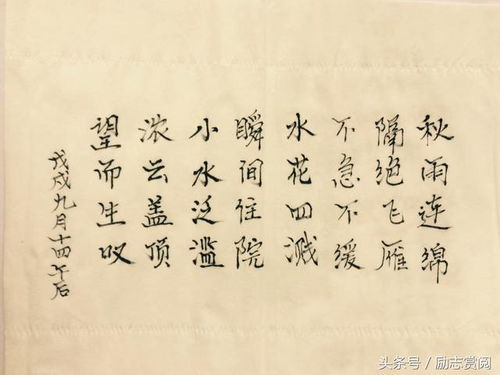 秋雨连绵
隔绝飞雁
不急不缓
水花四溅
瞬间住院
小水泛滥
浓云盖顶
望而生叹
戊戌九月十四午后
头条号／励志赏阅